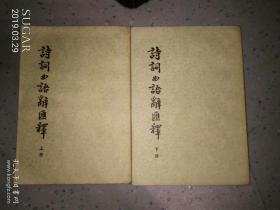 SUGAR
2019.03.29
詩詞曲語辭匯釋
上册
詩詞曲語辭匯釋
下册
孔夫子旧书网